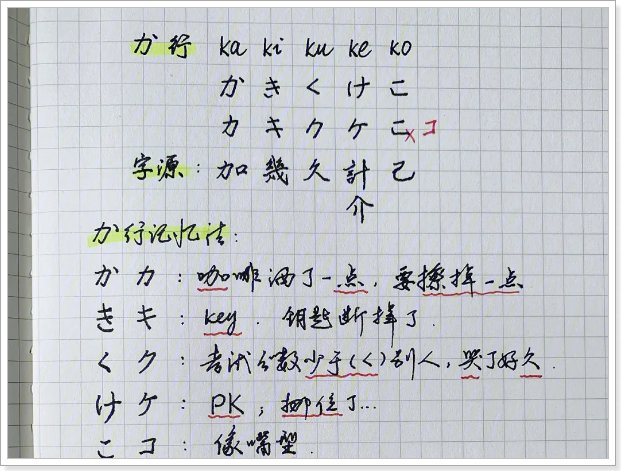 か行 ka ki ku ke ko
か き く け こ
カ キ ク ケ こ× コ
字源: 加 幾 久 計 己
介
か行记忆法:
か カ : 咖啡洒了一点, 要擦掉一点
き キ : key. 钥匙断掉了.
く ク : 考试分数少于(<)别人, 哭了好久.
け ケ : PK; 掷住了...
こ コ : 像嘴型.